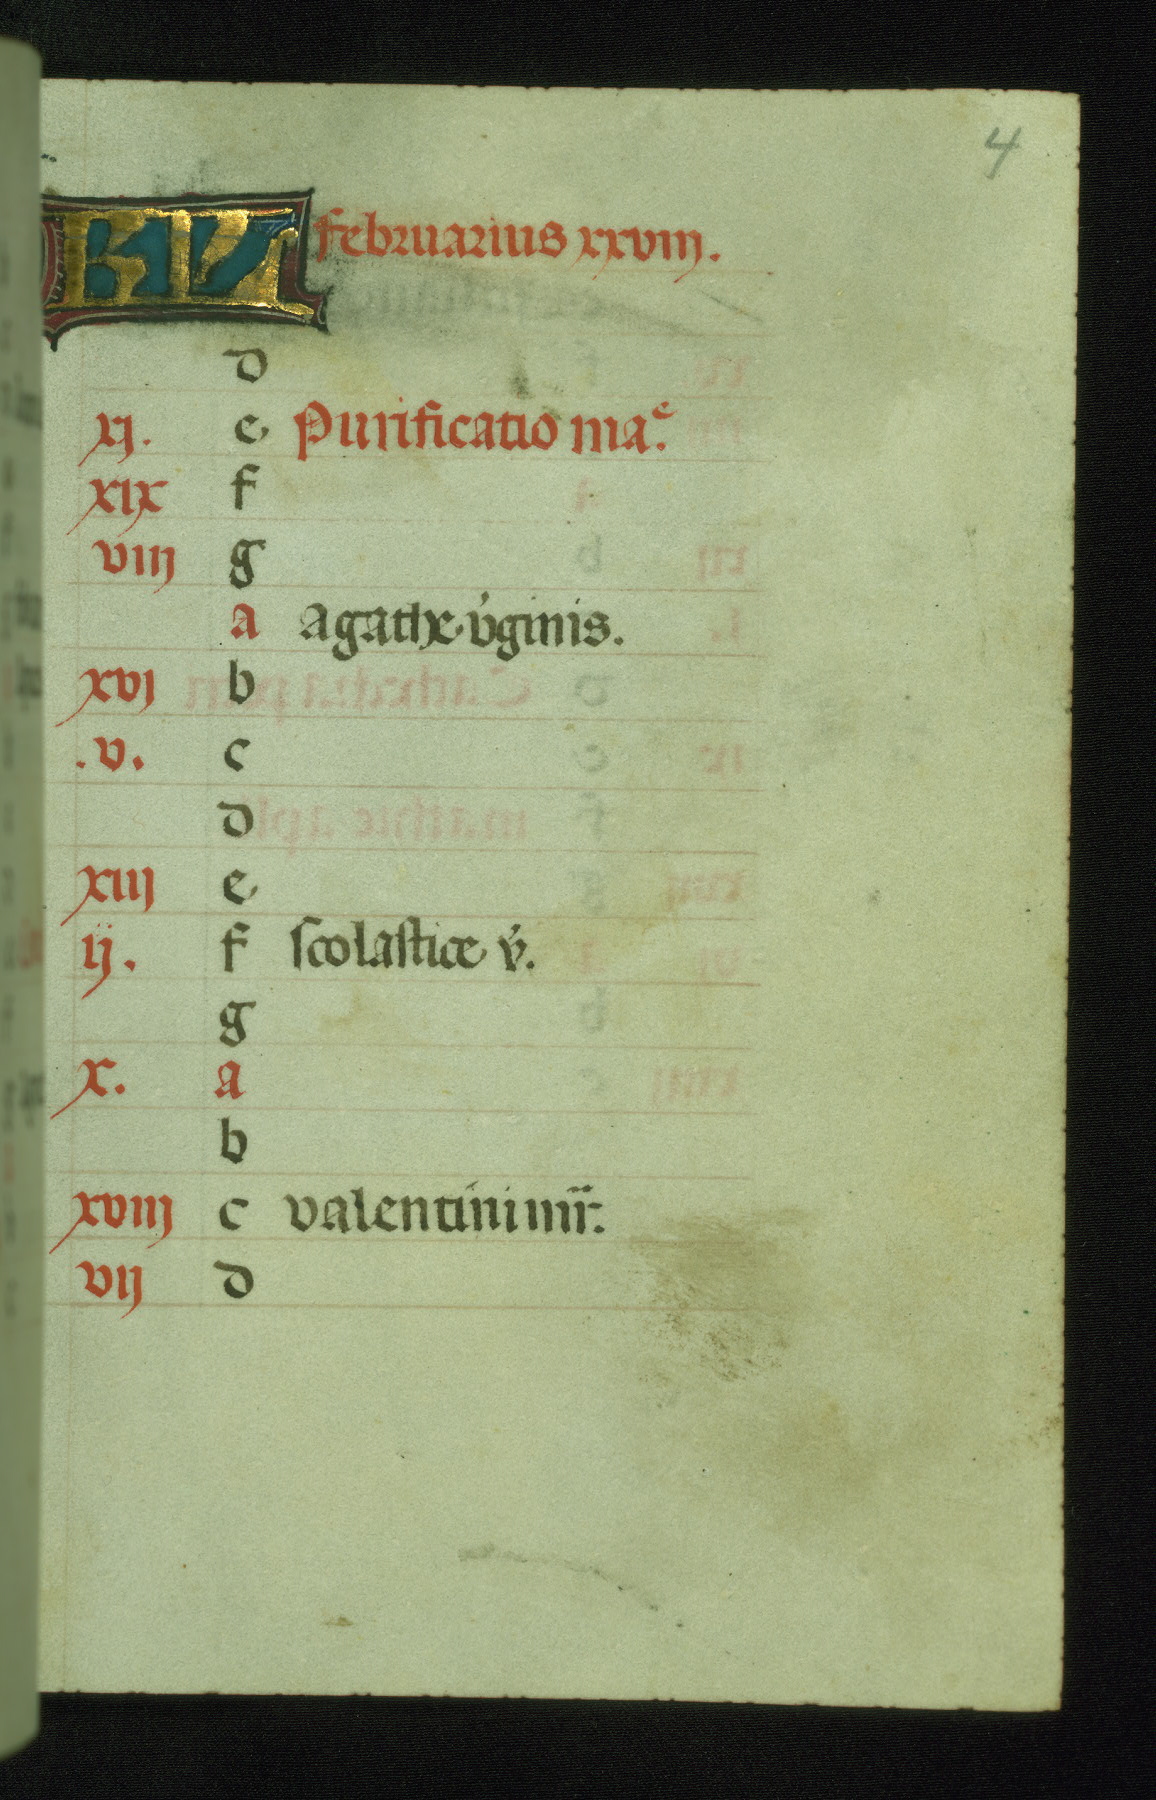 4
KL februarius xxviij.
d
xj. e Purificatio ma.e
xix f
viij g
a agathe v̾ginis.
xvj b
.v. c
d
xiij e
ij. f scolastice v̾.
g
x. a
b
xviij c valentini mr̄.
vij d